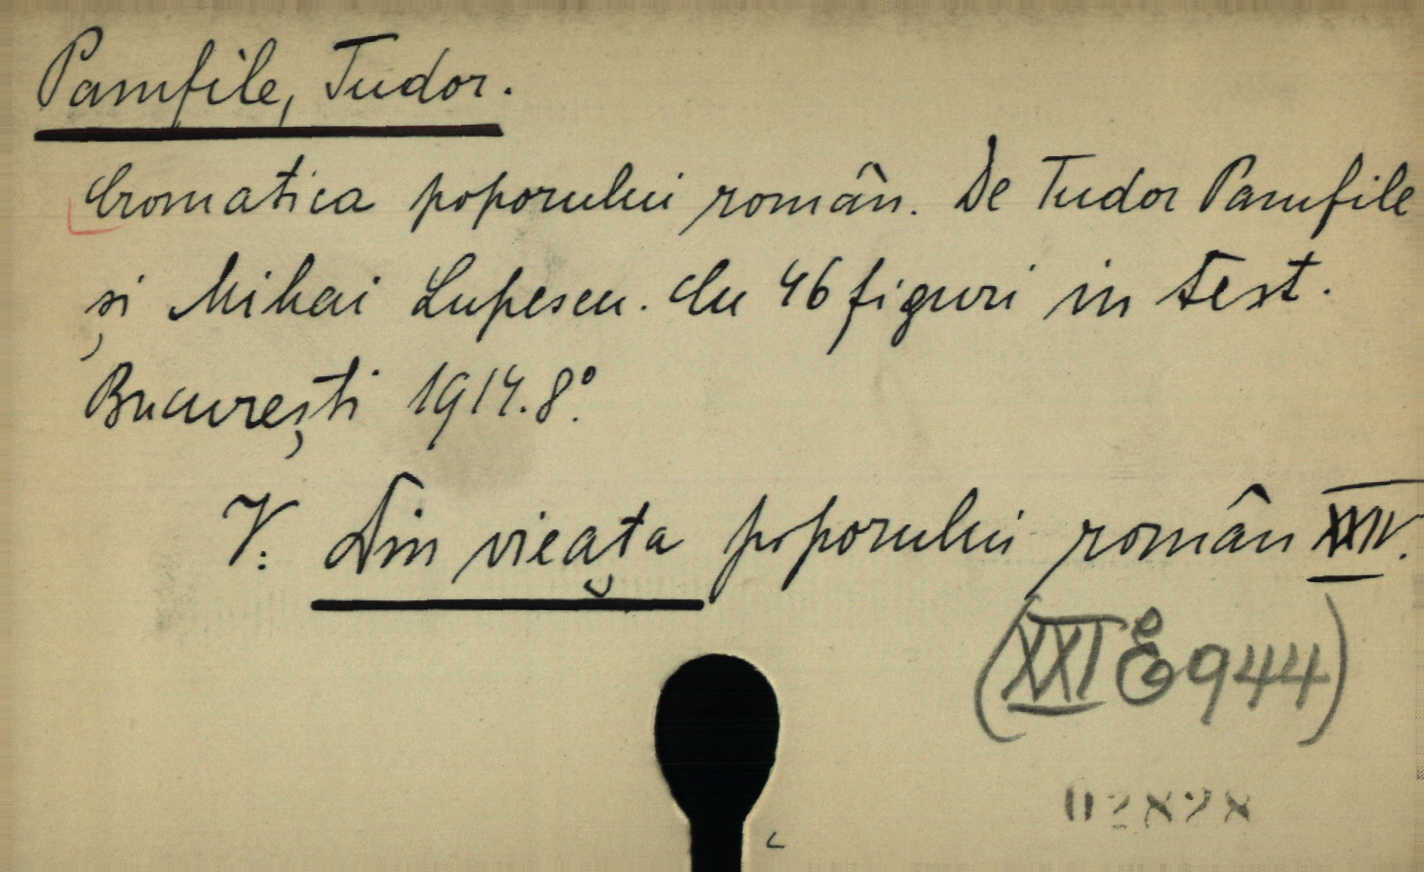 Pamfile, Tudor.
Cromatica poporului român. De Tudor Pamfile
și Mihai Lupescu. Cu 46 figuri in text.
București 1914. 8º.
V: Din vieața poporului român XXIV.
(XXI E 944)
02828